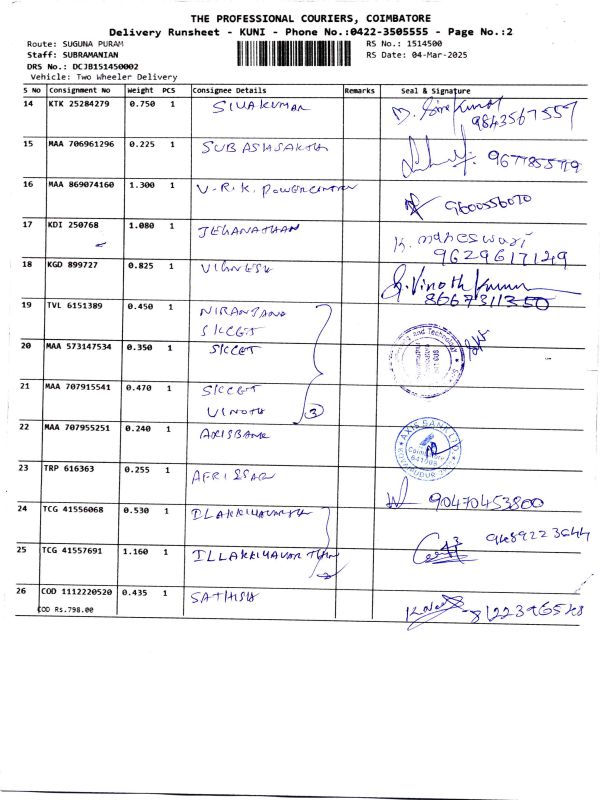 THE PROFESSIONAL COURIERS, COIMBATORE
Delivery Runsheet - KUNI - Phone No.:0422-3505555 - Page No.:2
Route: SUGUNA PURAM RS No.: 1514500
Staff: SUBRAMANIAN RS Date: 04-Mar-2025
DRS No.: DCJB151450002
Vehicle: Two Wheeler Delivery
S No Consignment No Weight PCS Consignee Details Remarks Seal & Signature
14 KTK 25284279 0.750 1 SIVAKUMAR
9843567557
15 MAA 706961296 0.225 1 SUBASHSAKTHI
16 MAA 869074160 1.300 1 V.R.K. POWERCENTRA 9600556070
17 KDI 250768 1.080 1 JEGANATHAN K. maheswari
9629617129
18 KGD 899727 0.825 1 VIGNESH G. Vinoth Kumar
8667311350
19 TVL 6151389 0.450 1 NIRANJANA
SKCET
20 MAA 573147534 0.350 1 SKCET
and Technology
21 MAA 707915541 0.470 1 SKCET
VINOTH 3
22 MAA 707955251 0.240 1 AXISBANK AXIS BANK LTD.
Coimbatore
23 TRP 616363 0.255 1 AFRISSAN
24 TCG 41556068 0.530 1 ILAKKIYAVARTH 90470453800
25 TCG 41557691 1.160 1 ILLAKKIYAVARTHAN 9489223644
2
26 COD 1112220520 0.435 1 SATHISH 8122396548
COD Rs.798.00